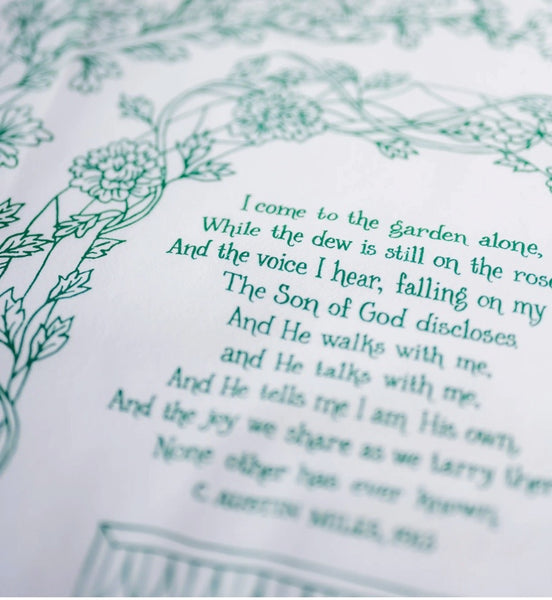 I come to the garden alone,
While the dew is still on the rose
And the voice I hear, falling on my
The Son of God discloses
And He walks with me,
and He talks with me,
And He tells me I am His own,
And the joy we share as we tarry ther
None other has ever known,
C. AUSTIN MILES, 1913